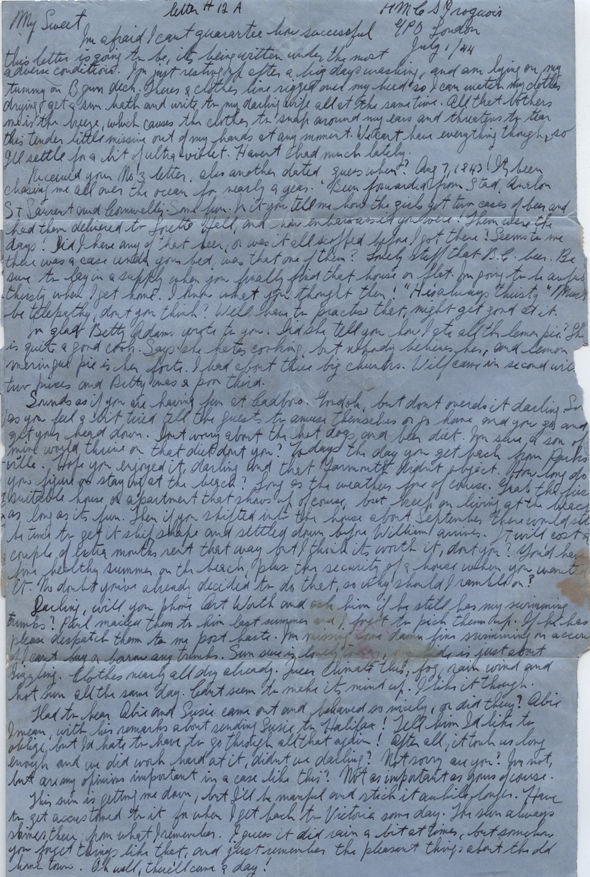 letter # 12 A
H.M.C.S Iroquois
My Sweet
GPO London
I'm afraid I cant guarantee how successful
July 1/44
this letter is going to be, its being written under the most
adverse conditions. I'm just resting up after a big days washing, and am lying on my
tummy on B gun deck. Theres a clothes line rigged over my head so I can watch my clothes
drying, get a sun bath and write to my darling wife all at the same time. All that bothers
me is the breeze, which causes the clothes to snap around my ears and threatens to tear
this tender little missive out of my hands at any moment. We cant have everything though, so
I'll settle for a bit of ultra violet. Havent had much lately.
Received your No 3 letter, also another dated guess when? Aug 7, 1943! Its been
chasing me all over the ocean for nearly a year. Been forwarded from Stad, Avalon
St Laurent and Some fun. In it you tell me how the girls got two cases of beer and
had them delivered to and how embarrassed you were! Them were the
days! Did I have any of that beer, or was it all scoffed before I got there? Seems to me
there was a case under your bed, was that one of them? Lovely stuff that B.C. beer. Be
sure to lay in a supply when you finally find that house or flat. I'm going to be awfully
thirsty when I get home. I know what you thought then! "He's always thirsty" Must
be telepathy dont you think? We'll have to practise that, might get good at it.
I'm glad Betty Adams wrote to you. Did she tell you how I got all the lemon pie? She
is quite a good cook. Says she hates cooking, but nobody believes her, and lemon
meringue pie is her forte. I had about three big chunks. Will came in second with
two pieces and Betty was a poor third.
Sounds as if you are having fun at Cadboro. Goodoh, but dont overdo it darling. Soon
as you feel a bit tired tell the guests to amuse themselves or go home and you go and
get your head down. Dont worry about the hot dogs and beer diet. I'm sure a son of
mine would thrive on that diet dont you? Todays the day you get back from Parks-
ville. Hope you enjoyed it, darling and that didnt object. How long do
you figure on staying at the beach? Long as the weathers fine of course. Grab the first
suitable house or apartment that shows up of course, but keep on living at the beach
as long as its fun. Then if you shifted into the house about September there would still
be time to get it ship shape and settled down before William arrives. It would cost a
couple of extra months rent that way but I think its worth it, dont you? You'd have
fine healthy summer on the beach, plus the security of a house when you wanted
it. No doubt you've already decided to do that, so why should I ramble on?
Darling, will you phone Cart Worth and ask him if he still has my swimming
trunks? Paul mailed them to him last summer and I forgot to pick them up. If he has
please despatch them to me post haste. I'm missing some damn fine swimming on account
I cant buy or borrow any trunks. Sun sure is lovely is just about
sizzling. Clothes nearly all dry already. Queer climate this, fog, rain wind and
hot sun all the same day. Cant seem to make its mind up. I like it though.
Had to hear Abie and Susie came out and behaved so nicely, or did they? Abie
I mean, with his remarks about sending Susie to Halifax! Tell him I'd like to
oblige, but I'd hate to have to go through all that again! After all, it took us long
enough and we did work hard at it, didnt we darling? Not sorry are you? I'm not,
but are my opinions important in a case like this? Not as important as yours of course.
This sun is getting me down, but I'll be manful and stick it awhile longer. Have
to get accustomed to it for when I get back to Victoria some day. The sun always
shines there, from what I remember. I guess it did rain a bit at times, but somehow
you forget things like that, and just remember the pleasant things about the old
home town. Oh well, there'll come a day!